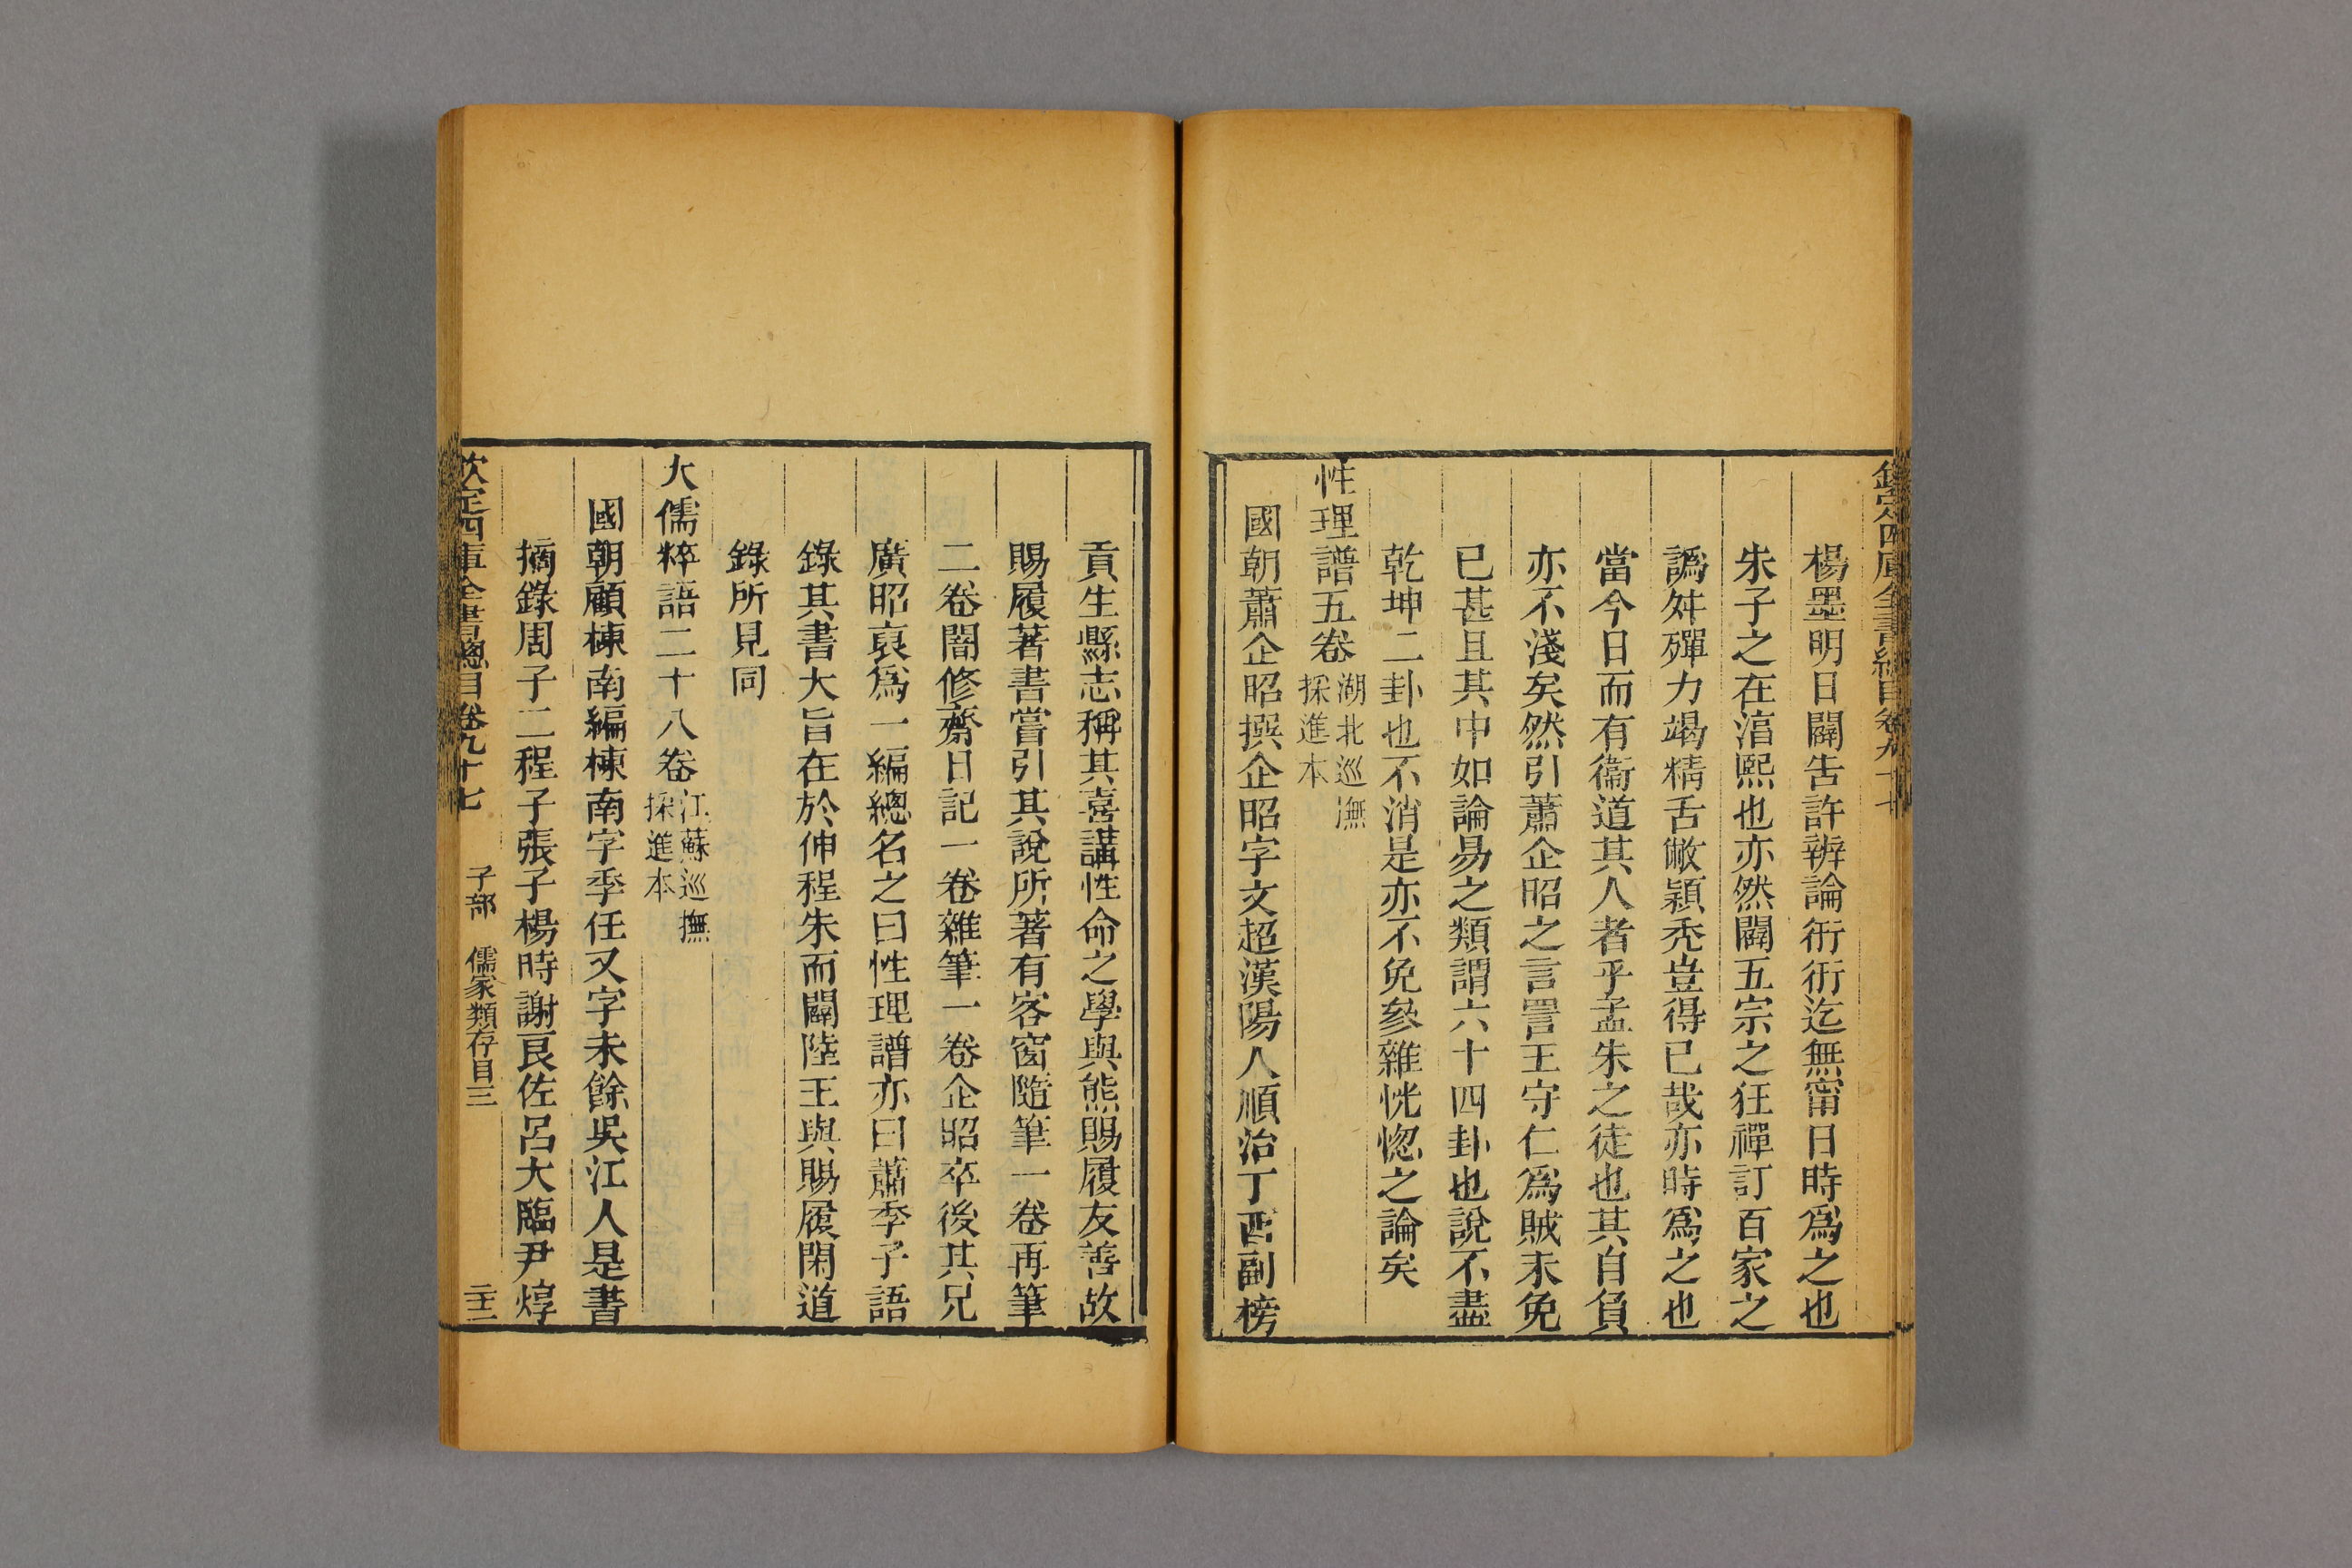 欽定四庫全書總目卷九十七
楊墨明日闢告許辨論衎衎迄無甯日時爲之也
朱子之在湻熙也亦然闢五宗之狂禪訂百家之
譌舛殫力竭精舌敝穎禿豈得已哉亦時爲之也
當今日而有衞道其人者乎孟朱之徒也其自負
亦不淺矣然引蕭企昭之言詈王守仁爲賊未免
已甚且其中如論易之類謂六十四卦也說不盡
乾坤二卦也不消是亦不免參雜恍惚之論矣
性理譜五卷湖北巡撫採進本
國朝蕭企昭撰企昭字文超漢陽人順治丁酉副榜
貢生縣志稱其喜講性命之學與熊賜履友善故
賜履著書嘗引其說所著有客窗隨筆一卷再筆
二卷闇修齋日記一卷雜筆一卷企昭卒後其兄
廣昭裒爲一編總名之曰性理譜亦曰蕭季子語
錄其書大旨在於伸程朱而闢陸王與賜履閑道
錄所見同
大儒粹語二十八卷江蘇巡撫採進本
國朝顧棟南編棟南字季任又字未餘吳江人是書
摘錄周子二程子張子楊時謝良佐呂大臨尹焞
欽定四庫全書總目卷九十七 子部 儒家類存目三 二十三